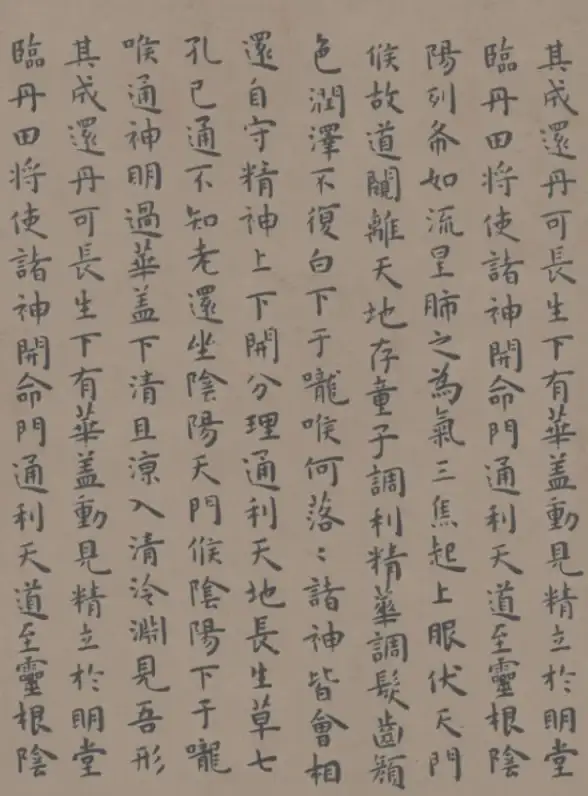 其成還丹可長生下有華盖動見精立於明堂
臨丹田将使諸神開命門通利天道至靈根陰
陽列布如流星肺之為氣三焦起上服伏天門
候故道闚離天地存童子調利精華調髮齒顏
色潤澤不復白下于嚨喉何落〻諸神皆會相
還自守精神上下開分理通利天地長生草七
孔已通不知老還坐陰陽天門候陰陽下于嚨
喉通神明過華盖下清且涼入清泠淵見吾形
其成還丹可長生下有華盖動見精立於明堂
臨丹田将使諸神開命門通利天道至靈根陰